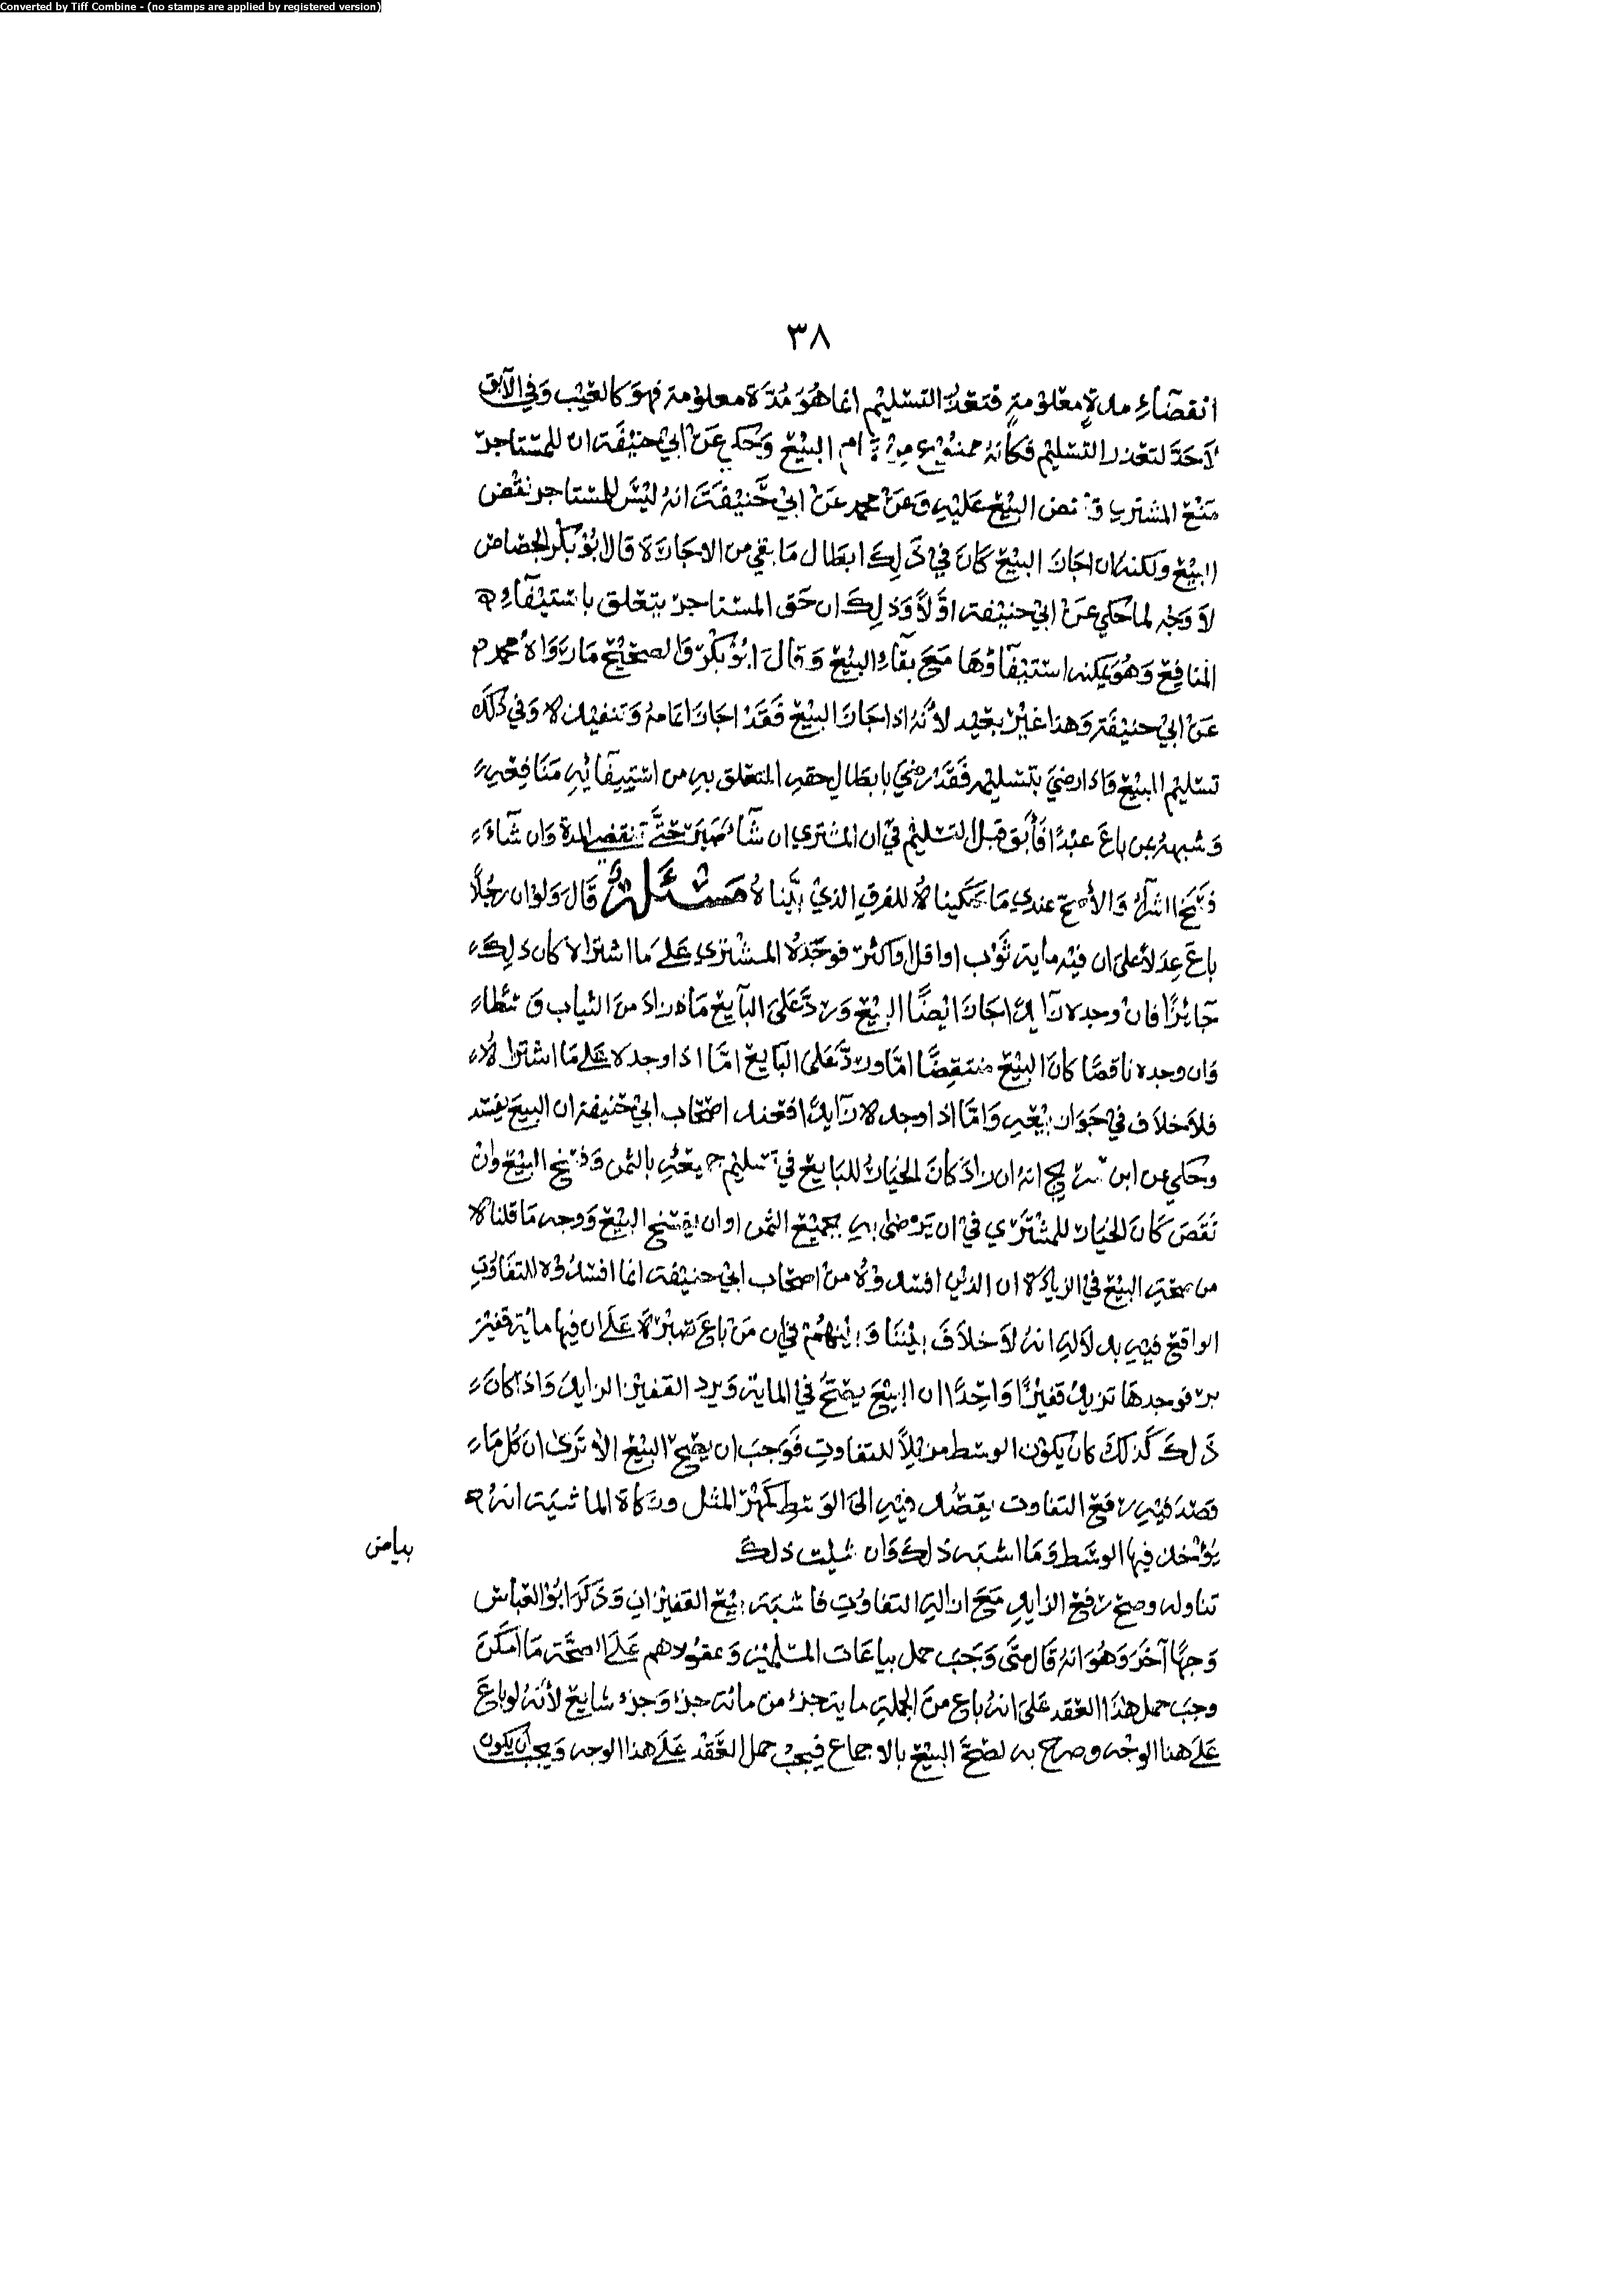 Converted by Tiff Combine - (no stamps are applied by registered version)
٣٨
انقضاءِ مدةٍ معلومةٍ فتعذُّر التسليم انما هُوَ مُدَّة معلومة فهوَ كالعَيْب وَفي الآبق
لاَحَدَّ لتعذر التسليم فكأنهُ ممنوع من البيع وَحكي عَنْ ابي حنيفَة ان للمستاجر
مَنْعَ المشتري البيع عليهِ وَعن محمد عَنْ ابي حَنيفَة انهُ ليْسَ للمستاجر نقْض
البيْع ولكنه ان اجاز البيع كان في ذَلِكَ ابطال مَا بقي من الاجارَة قال ابُوْ بَكْر الجصّاص
لاَ وَجْه لما حكي عَنْ ابي حنيفة اوَّلاً وَذلِكَ ان حَق المستاجر يتعلق باستيفاءِ
المنافع وَهُوَ يمكنه استيفاؤهَا مَعَ بقاءِ البيْع وَقالَ ابُوْ بَكْر وَالصحيْح مَا رَوَاهُ محمد
عَنْ ابي حنيفَة وَهذا غيرْ بعيْد لأَنهُ اذا جَازَ البيع فَقَدْ اجاز اتمامهُ وَتنفيذه وَفي ذَلكَ
تسليم المبيْع فاذا رضيَ بتسليمه فَقَدْ رضيَ بابطالِ حقهِ المتعلق بهِ من استيفائهِ مَنَافِعهِ
وَشبههُ بمن باعَ عبْدًا فَأَبَق قبل التسليم في ان المشتري ان شَآءَ صَبَرَ حَتَّى تنقضي المدة وَان شَآءَ
فسَخَ الشرآءَ وَالأَصح عندي مَا حَكينَاهُ للفرقِ الذيْ بيَّنا هُ مَسْئَلَةٌ قَالَ وَلوْ ان رجُلاً
باعَ عِدلاً على ان فيْه ماية ثوْب او اقل او اكثر فوجَدهُ المشتري عَلى مَا اشتراه كان ذلِكَ
جَائزًا فان وجده زآيدًا جَازَ ايْضًا البيْع وَردَّ عَلى البآيع مَا زاد منَ الثياب
وَان وجده ناقصًا كانَ البيْع منتقِضًا وردَّ عَلى البآيع امَّا اذا وجده عَلى مَا اشتراهُ
فلاَ خلاَف فيْ جَوَاز بيْعهِ وَامَّا اذا وجده زآيدًا فعند اصْحَاب ابي حنيفة ان البيعَ يفسد
وحكي عن ابن سريج انهُ ان زادَ كانَ الخيَارُ للبَايع في تسليم جميعهِ بالثمن وَفسْخ البيْع وانْ
نَقَصَ كَانَ الخيَار للمُشْتَري فيْ ان يَرْضَى بهِ بجميْع الثمن او ان يفسخ البيْع وَوجه مَا قلناه
من صحةِ البيْع في الزيادَة ان الذين افسَدوْهُ منْ اصحَاب ابي حنيفة انما افسَدُوْه للتفَاوُتِ
الواقع فيهِ بدلاَلةِ انهُ لاَ خلاَفَ بيْننَا وَبينهُمْ في ان مَنْ باعَ صُبْرَة عَلى ان فيها مائة قفيْز
بر فوجدهَا تزيدُ قفيْزًا وَاحِدًا ان البيْعَ يصحُّ في المايَة وَيرد القفيْز الزايد وَاذا كانَ
ذَلكَ كَذلكَ كانَ يكوْن الوسط مزيْلاً للتفاوتِ فَوَجبَ ان يصحَّ البيْع الاَ تَرَى ان كلَّ مَا
قصدَ فيْهِ رفع التفاوت يقصُد فيهِ الى الوَسَطِ كَمَهْر المثل وزكاة الماشيَة انهُ
يُؤْخذ فيها الوسَط وَمَا اشبَه ذلِكَ وَان شئت ذلكَ
بياض
تناوله وصحّ رفع الزايدِ مَعَ ازالةِ التفاوُتِ فاشبَهَ بيْع القفيْزانِ وَذَكَرَ ابُوْ العبَّاس
وَجهًا آخَرَ وَهُوَ انهُ قَال متَى وَجَبَ حمل بياعَات المسْلميْن وَعقودهم عَلى الصحَّة مَا امْكَنَ
وجبَ حمل هَذَا العَقد عَلى انهُ باع منَ الجملةِ ما يتجزء من مائة جزء وَجزء شايع لأَنهُ لو باعَ
عَلى هذا الوجْه وصرح به لصحَّ البيْع بالاجماع فيجبْ حمل العَقْد عَلى هذا الوجه وَيجب أن يكون